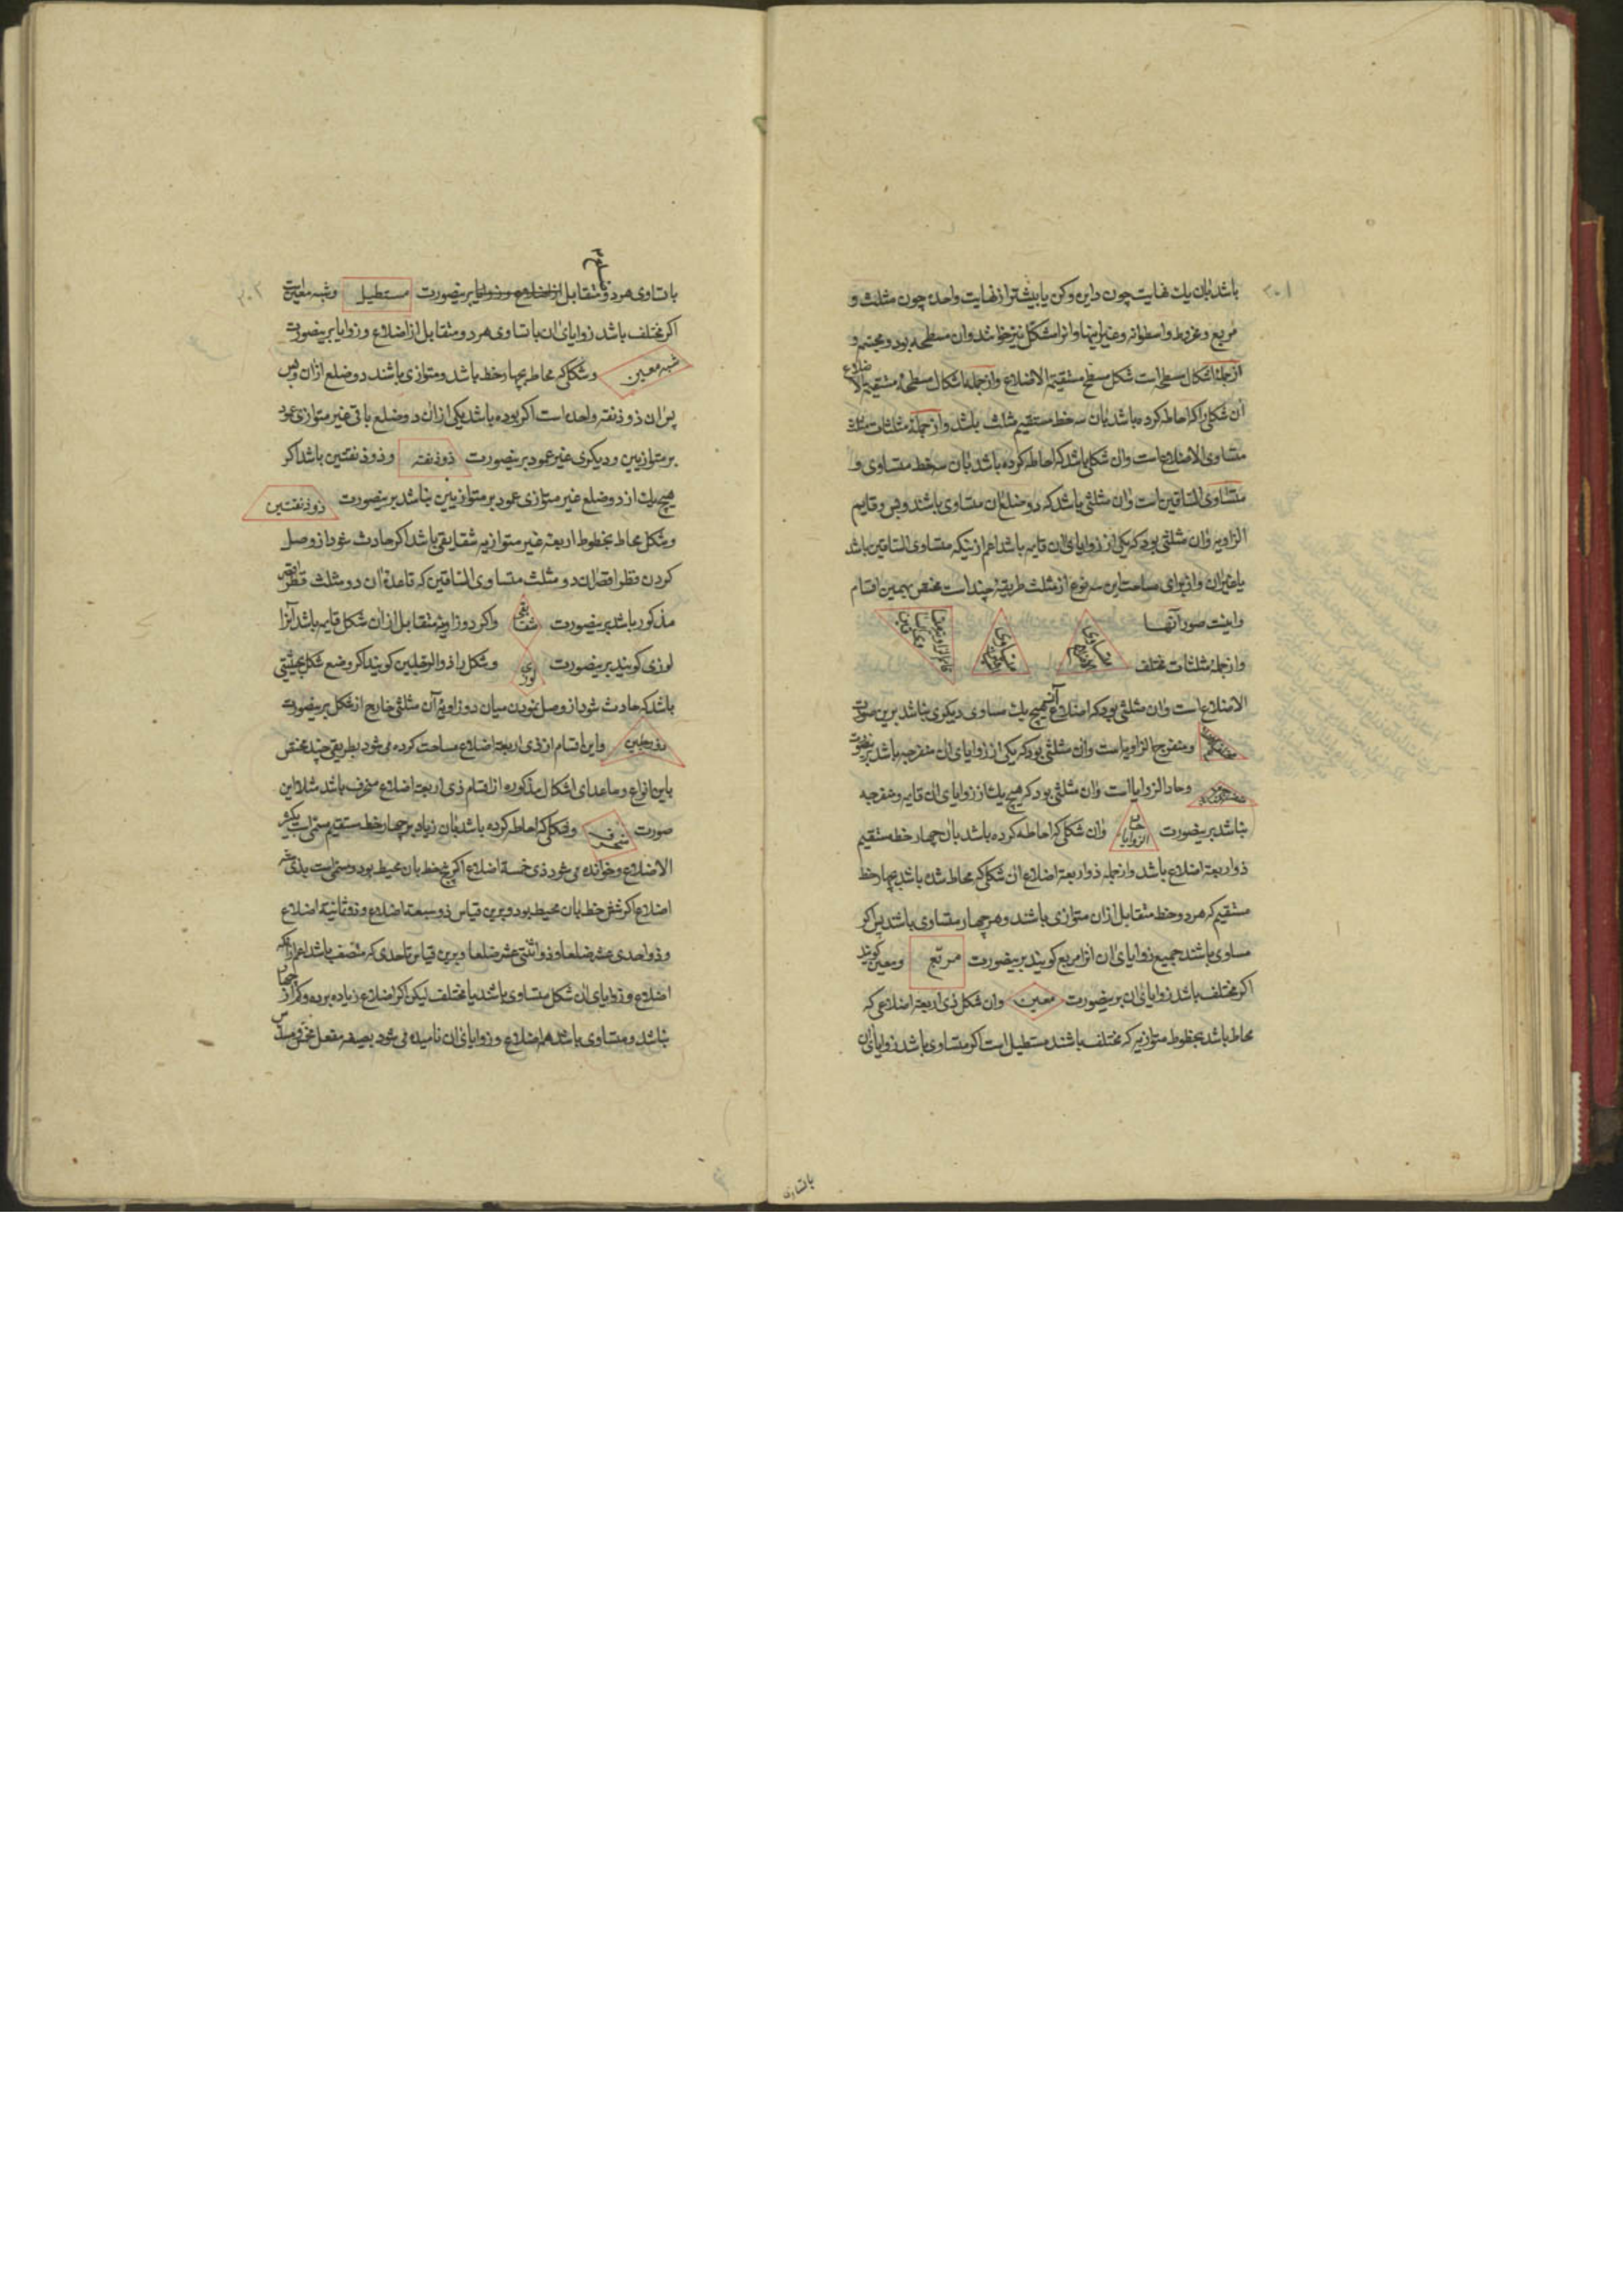 باشد بان یك نهایت چون دایره وکره یا بیشتر از نهایت واحده چون مثلث و
مربع و مخروط و اسطوانه و غیر اینها و انرا شکل نیز خوانند وان مسطحه بود و مجسمه و
ازجمله اشکال مسطح است شکل مسطح مستقیة الاضلاع وازجمله اشکال مسطحه مستقیة الاضلاع
آن شکلی را که احاطه کرده باشد بان سه خط مستقیم مثلث باشد و ازجمله مثلثات مثلث
متساوی الاضلاع است وان شکلی باشد که احاطه کرده باشد بان سه خط متساوی و
متساوی الساقین است وان مثلثی باشد که دو ضلع ان متساوی باشند وبس و قایم
الزاویه وان مثلثی بود که یکی از زوایای ان قایمه باشد اعم از نیکه متساوی الساقین باشد
یا غیر ان و از برای مساحت این سه نوع از مثلث طریقهٔ چند است مختص بهمین اقسام
واینست صور آنها
وازجمله مثلثات مختلف
الاضلاع است وان مثلثی بود که اضلاع آن هیچ یك مساوی دیکری نباشد برین صورت
ومنفرج الزاویه است وان مثلثی بود که یکی از زوایای ان منفرجه باشد برینصورت
وحاد الزوایا است وان مثلثی بود که هیچ یك از زوایای ان قایمه و منفرجه
نباشد برینصورت حاد الزوایا وان شکلی که احاطه کرده باشد بان چهار خط مستقیم
ذواربعة اضلاع باشد وازجمله ذواربعة اضلاع ان شکلی که محاط شده باشد بچهار خط
مستقیم که هر دو خط متقابل ازان متوازی باشند و هر چهار متساوی باشد پس اکر
مساوی باشند جمیع زوایای ان انرا مربع کویند برینصورت مربع ومعین کویند
اکر مختلف باشد زوایای ان برینصورت معین وان شکل ذی اربعة اضلاعی که
محاط باشد بخطوط متوازیه که مختلف باشند مستطیل است اکر متساوی باشد زوایای ان
باتساوی
۲۰۱
باتساوی هر دو متقابل از اضلاع و زوایا برینصورت مستطیل وشبه معین است
اکر مختلف باشد زوایای ان باتساوی هر دو متقابل از اضلاع و زوایا برینصورت
شبه معین وشکلی که محاط بچهار خط باشد ومتوازی باشند دو ضلع ازان وبس
پس ان ذوذنقه واحده است اکر بوده باشد یکی ازان دو ضلع باقی غیر متوازی عمود
بر متوازیین ودیکری غیر عمود برینصورت ذوذنقه وذوذنقتین باشد اکر
هیچ یك از دو ضلع غیر متوازی عمود بر متوازیین نباشد برینصورت ذوذنقتین
وشکل محاط بخطوط اربعه غیر متوازیه شقایقی باشد اکر حادث شود از وصل
کردن قطر اقصر ان دو مثلث متساوی الساقین که قاعدهٔ ان دو مثلث قطر اقصر
مذکور باشد برینصورت شقایقی واکر دو زاویه متقابل ازان شکل قایمه باشد آنرا
لوزی کویند برینصورت لوزی وشکل را ذوالرجلین کویند اکر وضع شکل بحیثیتی
باشد که حادث شود از وصل نمودن میان دو زاویه آن مثلثی خارج از شکل برینصورت
ذورجلین واین اقسام از ذی اربعة اضلاع مساحت کرده می شود بطریقی چند مختص
باین انواع وماعدای اشکال مذکوره از اقسام ذی اربعة اضلاع منحرف باشد مثلا این
صورت منحرف وشکلی که احاطه کرده باشد بان زیاده بر چهار خط مستقیم مسمی است بکثیر
الاضلاع وخوانده می شود ذی خمسة اضلاع اکر پنج خط بان محیط بود ومسمی است بذی ستة
اضلاع اکر شش خط بان محیط بود وبرین قیاس ذوسبعة اضلاع وذوثمانیة اضلاع
وذواحدی عشر ضلعا وذواثنتی عشر ضلعا وبرین قیاس تاحدی که متصف باشد اعم از انکه
اضلاع وزوایای ان شکل متساوی باشد یا مختلف لیکن اکر اضلاع زیاده بوده وکم از چهار
نباشد ومتساوی باشد هم اضلاع وزوایای ان نامیده می شود بصیغه مفعل مخمس ومسدس
۲۰۲